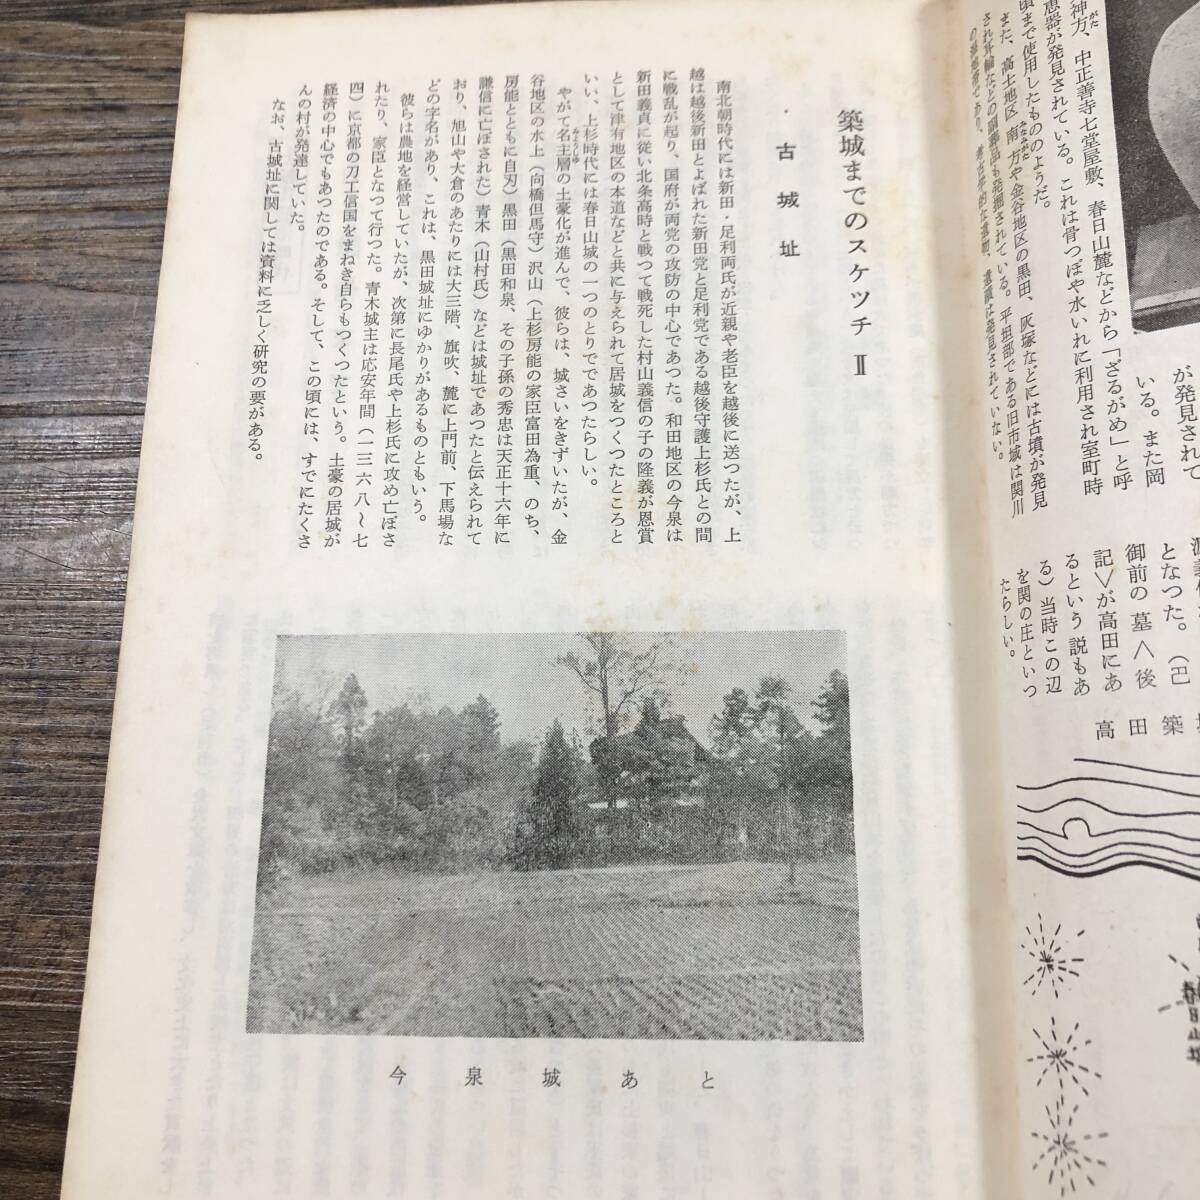 神方、中正善寺七堂屋敷、春日山麓などから「ざるがめ」と呼
恵器が発見されている。これは骨つぼや水いれに利用され室町時
頃まで使用したもののようだ。
また、高士地区南方や金谷地区の黒田、灰塚などには古墳が発見
され耳輪などの副葬品も発掘されている。平坦部である旧市城は関川
の
が発見されて
いる。また岡
となつた。（巴
御前の墓＜後
記＞が高田にあ
るという説もあ
る）当時この辺
を関の庄といつ
たらしい。
高田築
築城までのスケッチ Ⅱ
・古城址
南北朝時代には新田・足利両氏が近親や老臣を越後に送つたが、上
越は越後新田とよばれた新田党と足利党である越後守護上杉氏との間
に戦乱が起り、国府が両党の攻防の中心であつた。和田地区の今泉は
新田義貞に従い北条高時と戦つて戦死した村山義信の子の隆義が恩賞
として津有地区の本道などと共に与えられて居城をつくつたところと
いい、上杉時代には春日山城の一つのとりでであつたらしい。
やがて名主層の土豪化が進んで、彼らは、城さいをきずいたが、金
谷地区の水上（向橋但馬守）沢山（上杉房能の家臣富田為重、のち、
房能とともに自刃）黒田（黒田和泉、その子孫の秀忠は天正十六年に
謙信に亡ぼされた）青木（山村氏）などは城址であつたと伝えられて
おり、旭山や大倉のあたりには大三階、旗吹、麓に上門前、下馬場な
どの字名があり、これは、黒田城址にゆかりがあるものともいう。
彼らは農地を経営していたが、次第に長尾氏や上杉氏に攻め亡ぼさ
れたり、家臣となつて行つた。青木城主は応安年間（一三六八〜七
四）に京都の刀工信国をまねき自らもつくつたという。土豪の居城が
経済の中心でもあつたのである。そして、この頃には、すでにたくさ
んの村が発達していた。
なお、古城址に関しては資料に乏しく研究の要がある。
今泉城あと